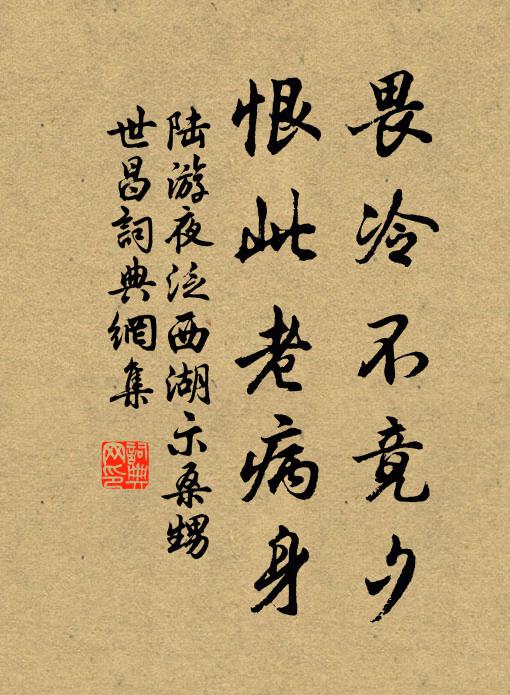 畏冷不竟夕
恨此老病身
陆游夜泛西湖示桑甥
世昌詞典網集
詞典
网印